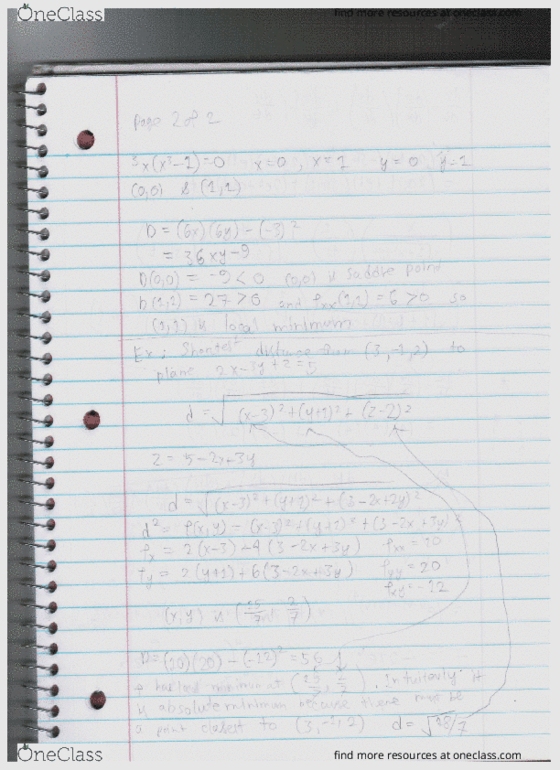 OneClass
find more resources at oneclass.com
Page 2 of 2
3x(x³-1)=0 x=0, x=1 y=0 y=1
(0,0) & (1,1)
D = (6x)(6y) - (-3)²
= 36xy-9
D(0,0) = -9<0 (0,0) is saddle point
D(1,1) = 27>0 and fxx(1,1) = 6 >0 so
(1,1) is local minimum
Ex: Shortest distance from (3,-1,2) to
plane 2x-3y+z=5
d = √(x-3)²+(y+1)²+(z-2)²
z = 5-2x+3y
d = √(x-3)²+(y+1)²+(3-2x+3y)²
d² = f(x,y) = (x-3)²+(y+1)²+(3-2x+3y)²
fx = 2(x-3)-4(3-2x+3y) fxx = 10
fy = 2(y+1)+6(3-2x+3y) fyy = 20
fxy = -12
(x,y) is
D = (20) - (-12)² = 56
local minimum at . Intuitively it
is absolute minimum because there must be
a point closest to (3,-1,2) d = √18/7
OneClass
find more resources at oneclass.com